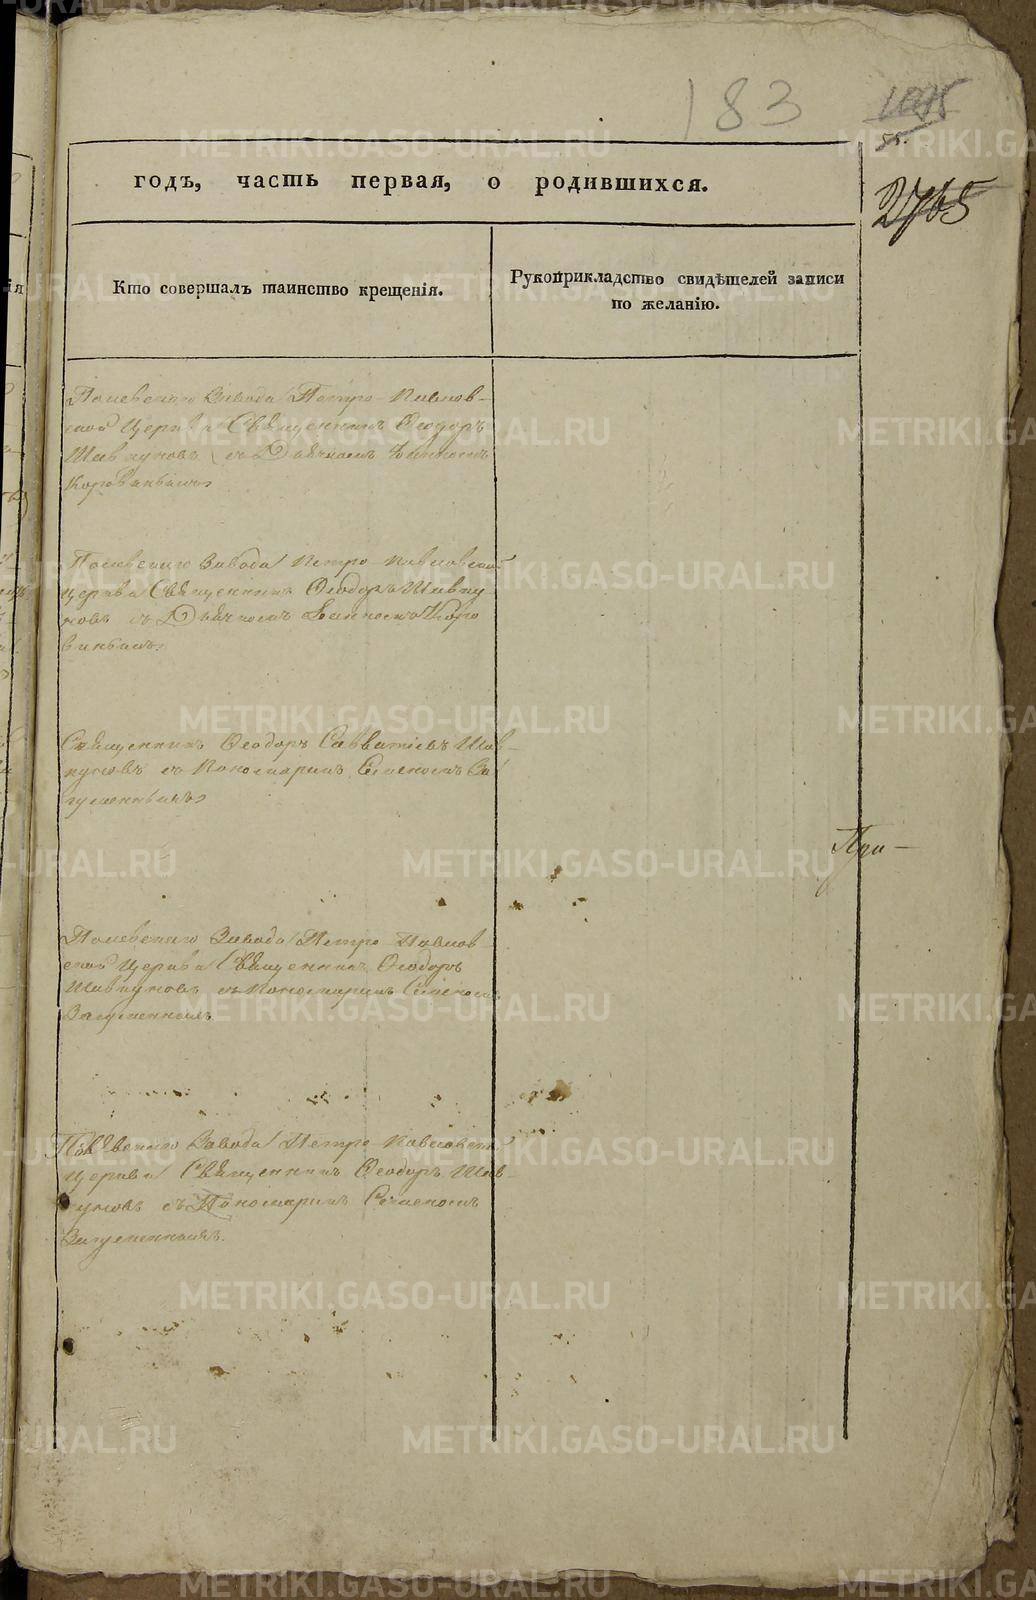 183
2765
годъ, часть первая, о родившихся.
Кто совершалъ таинство крещенія.
Рукоприкладство свидѣтелей записи
по желанію.
Полевскаго Завода Петро-Павлов-
ской Церкви Священникъ Ѳеодоръ
Шавкуновъ съ Дьячкомъ
Полевскаго Завода Петро-Павловской
Церкви Священникъ Ѳеодоръ Шавку
новъ съ Дьячкомъ
Священникъ Ѳеодоръ Савватіевъ Шав-
куновъ съ Пономаремъ
Полевскаго Завода Петро-Павлов
ской Церкви Священникъ Ѳеодоръ
Шавкуновъ съ Пономаремъ
При-
Завода Петро-Павловской
Церкви Священникъ Ѳеодоръ Шав-
куновъ съ Пономаремъ
METRIKI.GASO-URAL.RU